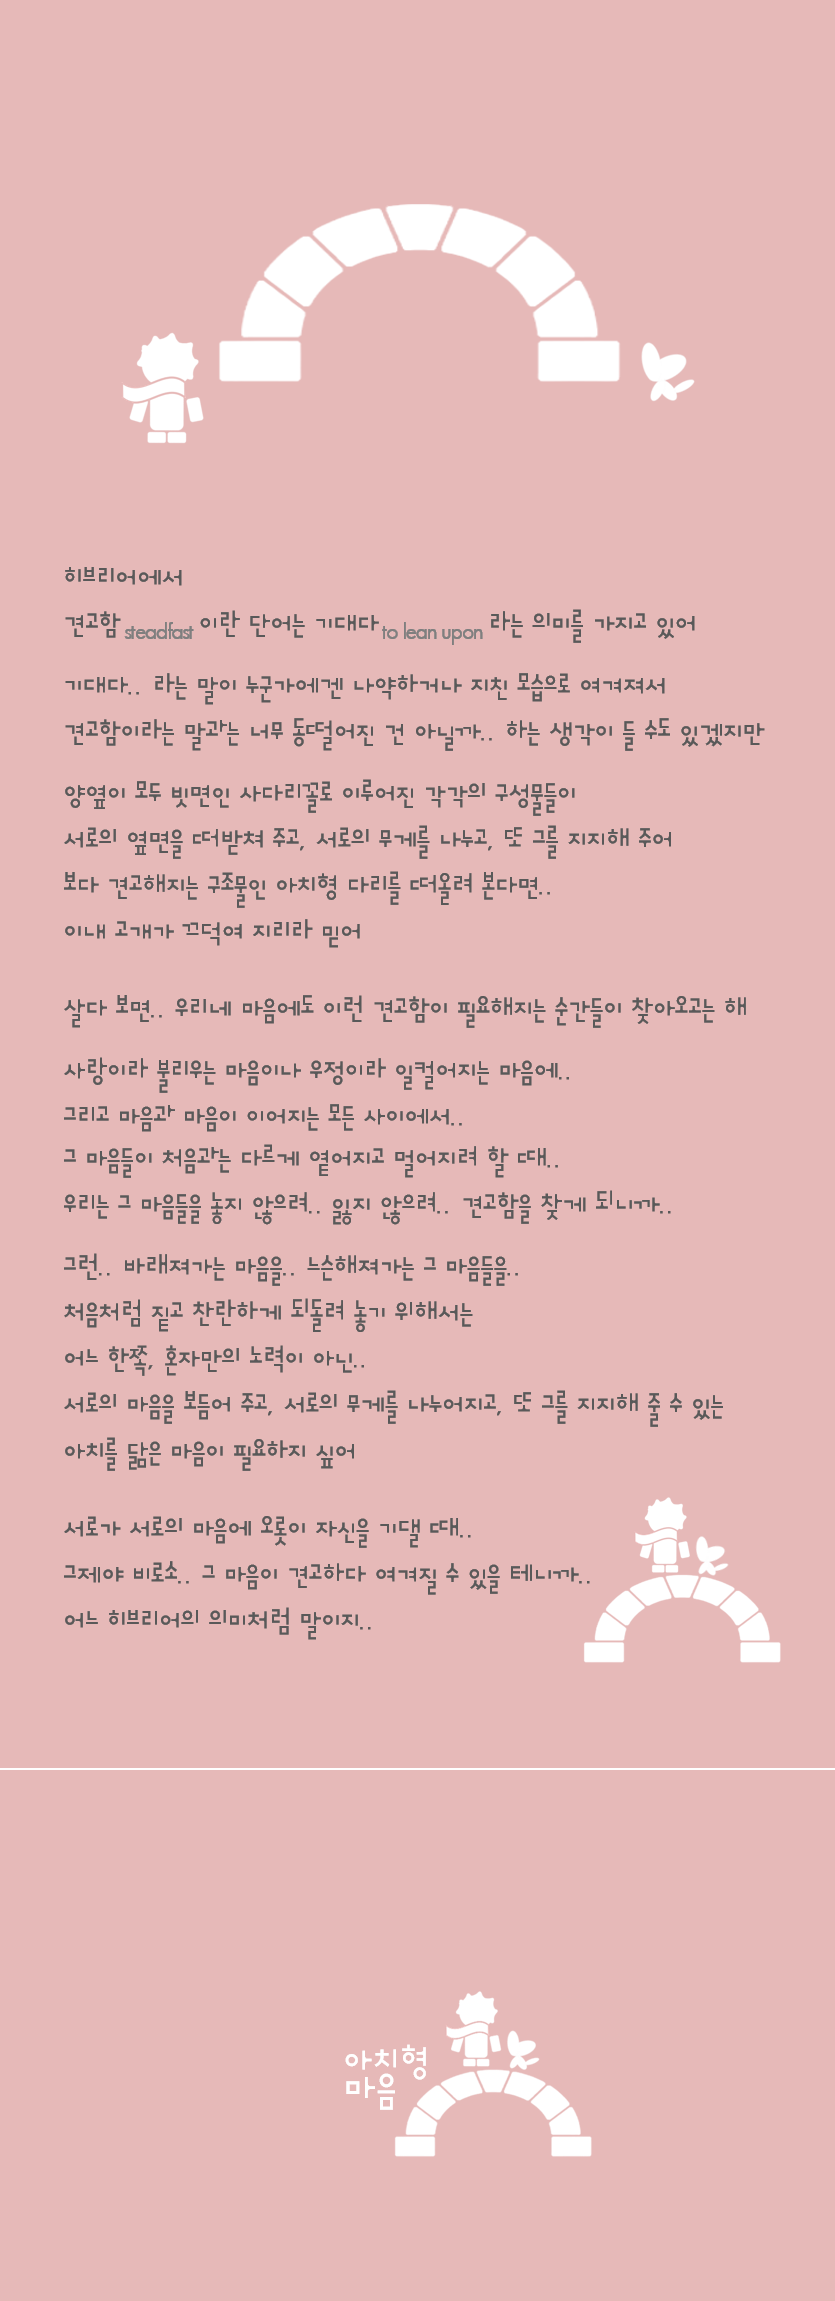 히브리어에서
견고함 steadfast 이란 단어는 기대다 to lean upon 라는 의미를 가지고 있어
기대다.. 라는 말이 누군가에겐 나약하거나 지친 모습으로 여겨져서
견고함이라는 말과는 너무 동떨어진 건 아닐까.. 하는 생각이 들 수도 있겠지만
양옆이 모두 빗면인 사다리꼴로 이루어진 각각의 구성물들이
서로의 옆면을 떠받쳐 주고, 서로의 무게를 나누고, 또 그를 지지해 주어
보다 견고해지는 구조물인 아치형 다리를 떠올려 본다면..
이내 고개가 끄덕여 지리라 믿어
살다 보면.. 우리네 마음에도 이런 견고함이 필요해지는 순간들이 찾아오고는 해
사랑이라 불리우는 마음이나 우정이라 일컬어지는 마음에..
그리고 마음과 마음이 이어지는 모든 사이에서..
그 마음들이 처음과는 다르게 옅어지고 멀어지려 할 때..
우리는 그 마음들을 놓지 않으려.. 잃지 않으려.. 견고함을 찾게 되니까..
그런.. 바래져가는 마음을.. 느슨해져가는 그 마음들을..
처음처럼 짙고 찬란하게 되돌려 놓기 위해서는
어느 한쪽, 혼자만의 노력이 아닌..
서로의 마음을 보듬어 주고, 서로의 무게를 나누어지고, 또 그를 지지해 줄 수 있는
아치를 닮은 마음이 필요하지 싶어
서로가 서로의 마음에 오롯이 자신을 기댈 때..
그제야 비로소.. 그 마음이 견고하다 여겨질 수 있을 테니까..
어느 히브리어의 의미처럼 말이지..
아치형
마음